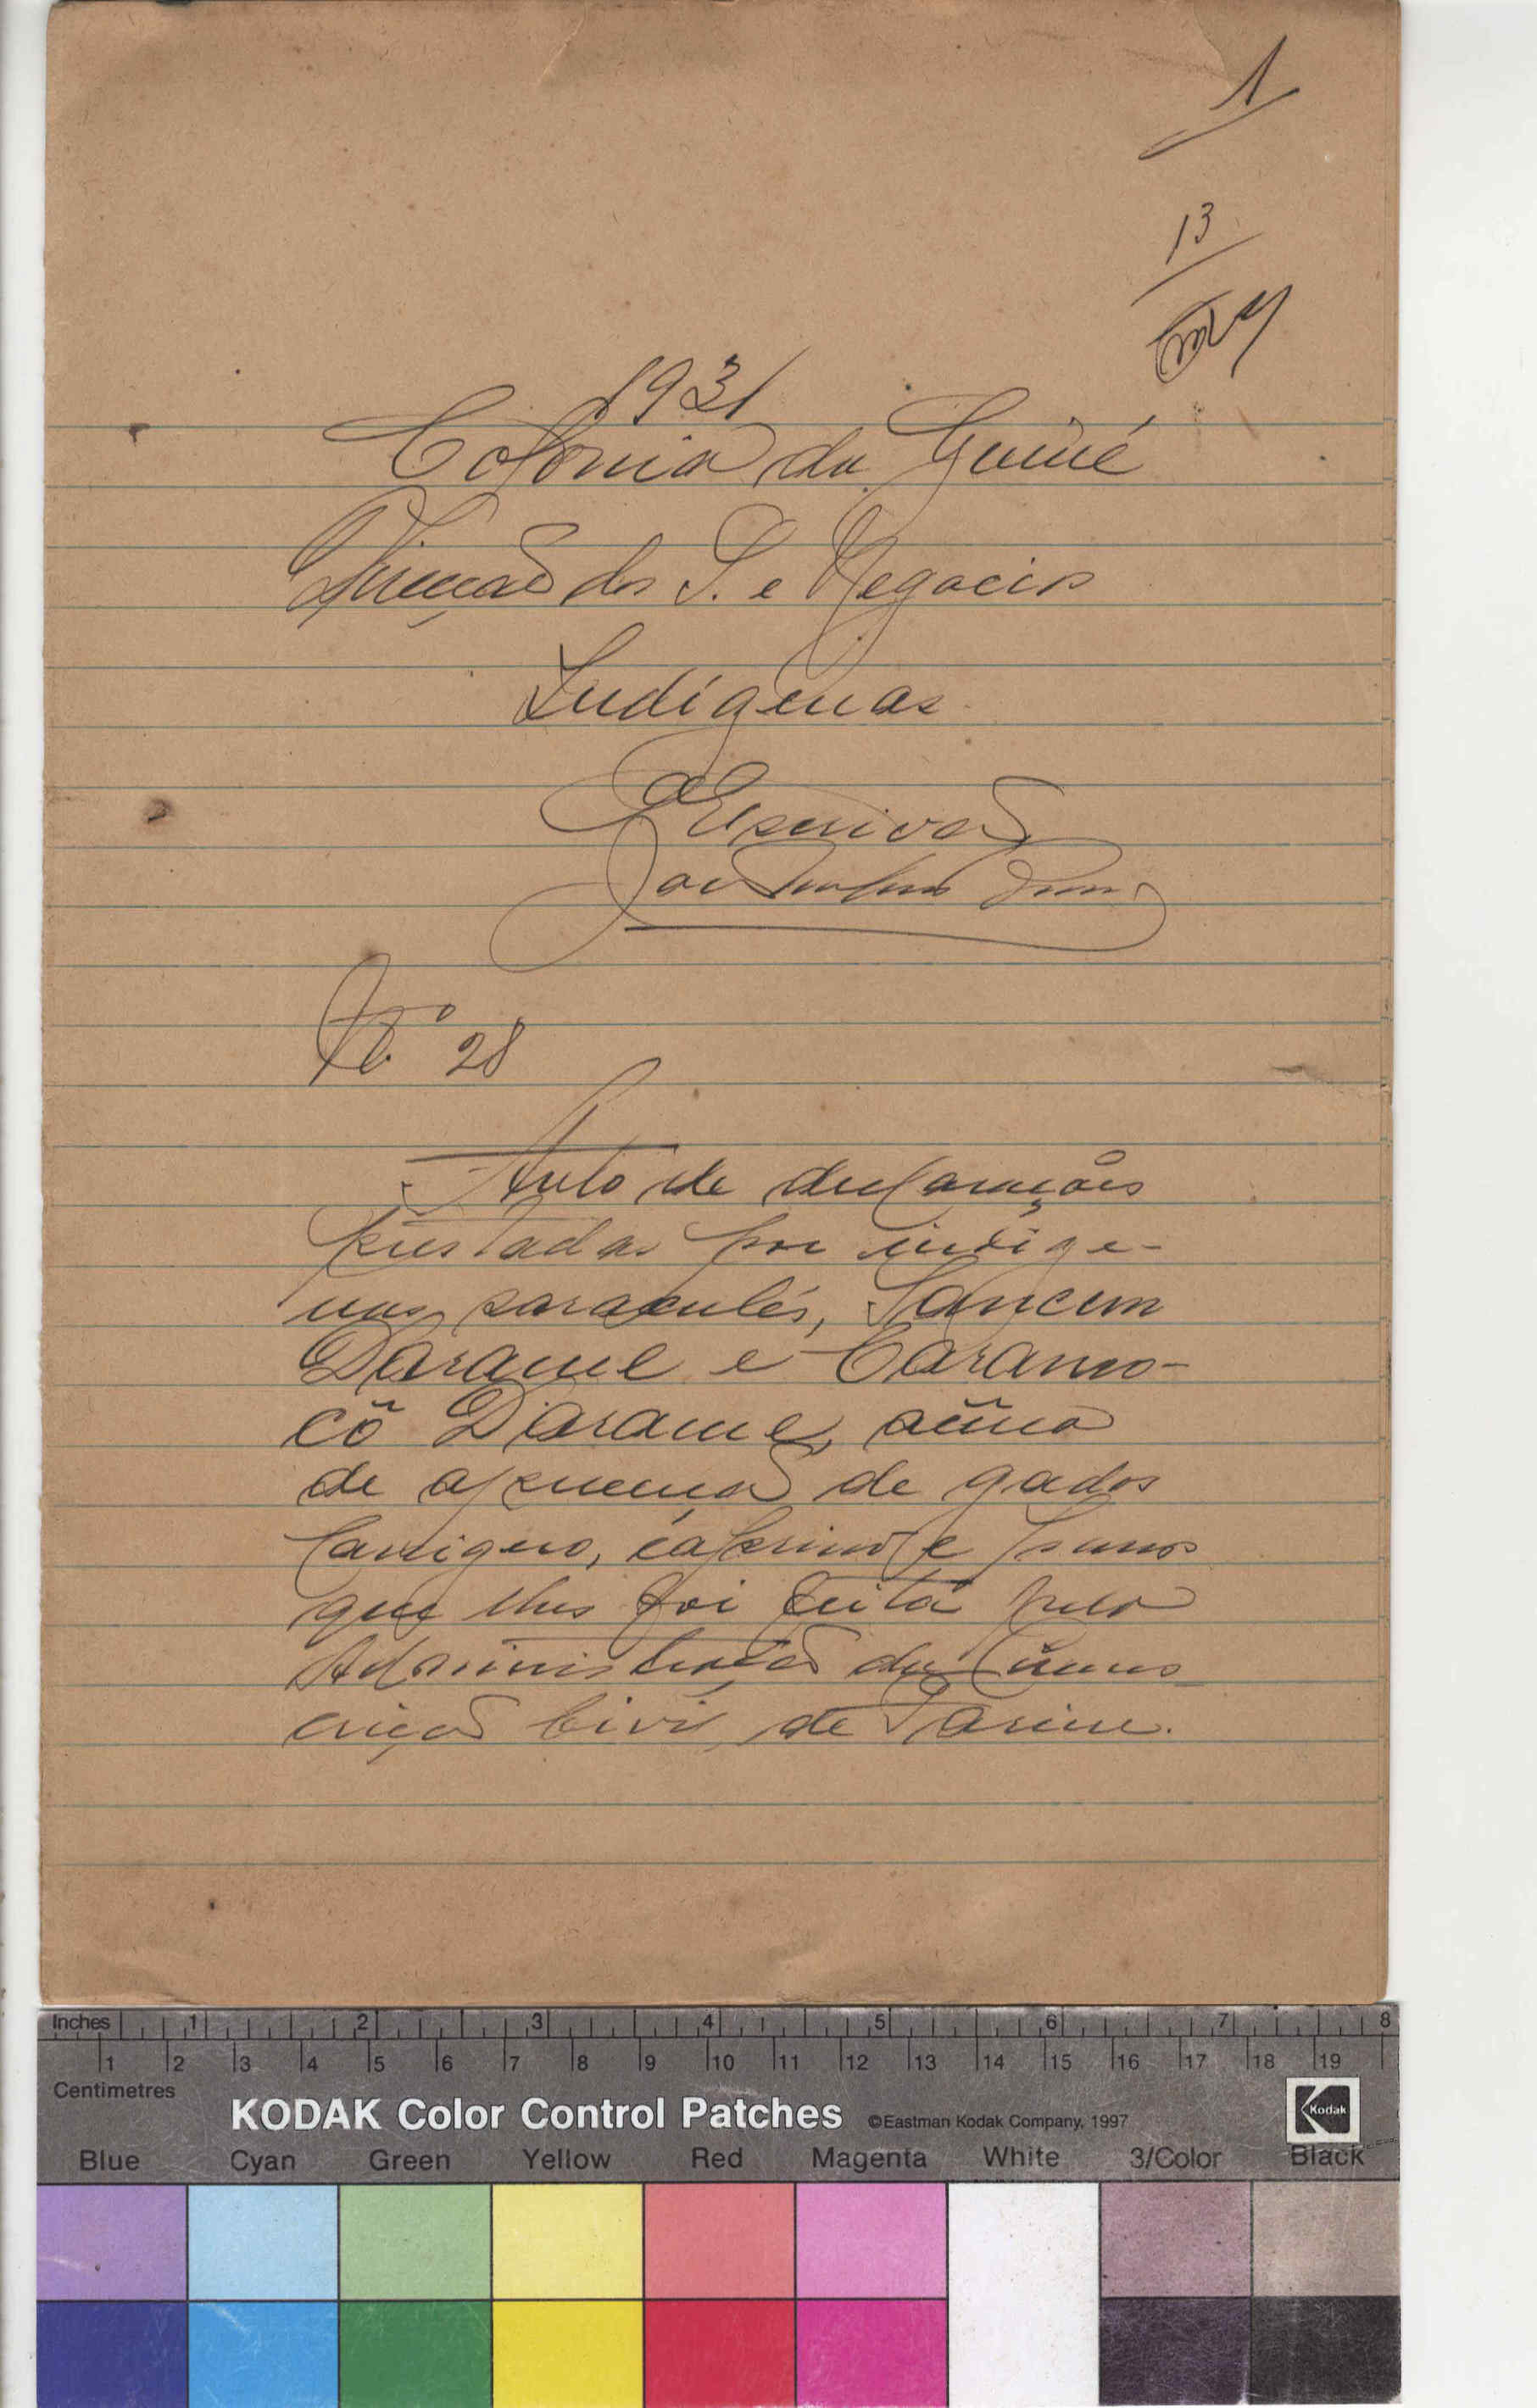 1
13
1931
Colonia da Guiné
Direcção dos S. e Negocios
Indígenas
O Escrivão
Nº 28
Auto de declarações
prestadas por indige-
nas saraculés, Lancem
Darame e Caramo-
cô Darame, acêrca
de apreensão de gados
lanigero, caprino e
que lhes foi feita pela
Administração da Circuns
crição Civil de Farim.
Inches 1 2 3 4 5 6 7 8
1 2 3 4 5 6 7 8 9 10 11 12 13 14 15 16 17 18 19
Centimetres
KODAK Color Control Patches ©Eastman Kodak Company, 1997 Kodak
Blue Cyan Green Yellow Red Magenta White 3/Color Black